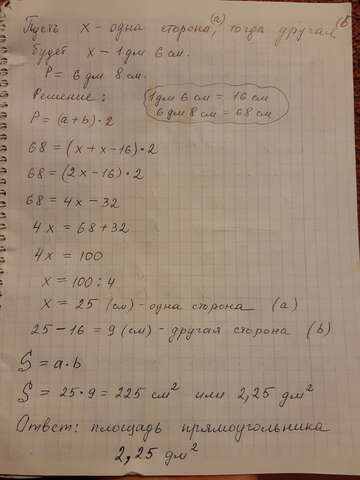 Пусть х - одна сторона (а), тогда другая (б)
будет х - 1 дм 6 см.
Р = 6 дм 8 см.
Решение:
1 дм 6 см = 16 см
6 дм 8 см = 68 см
Р = (а + b) · 2
68 = (х + х - 16) · 2
68 = (2х - 16) · 2
68 = 4х - 32
4х = 68 + 32
4х = 100
х = 100 : 4
х = 25 (см) - одна сторона (а)
25 - 16 = 9 (см) - другая сторона (b)
S = a · b
S = 25 · 9 = 225 см² или 2,25 дм²
Ответ: площадь прямоугольника
2,25 дм²